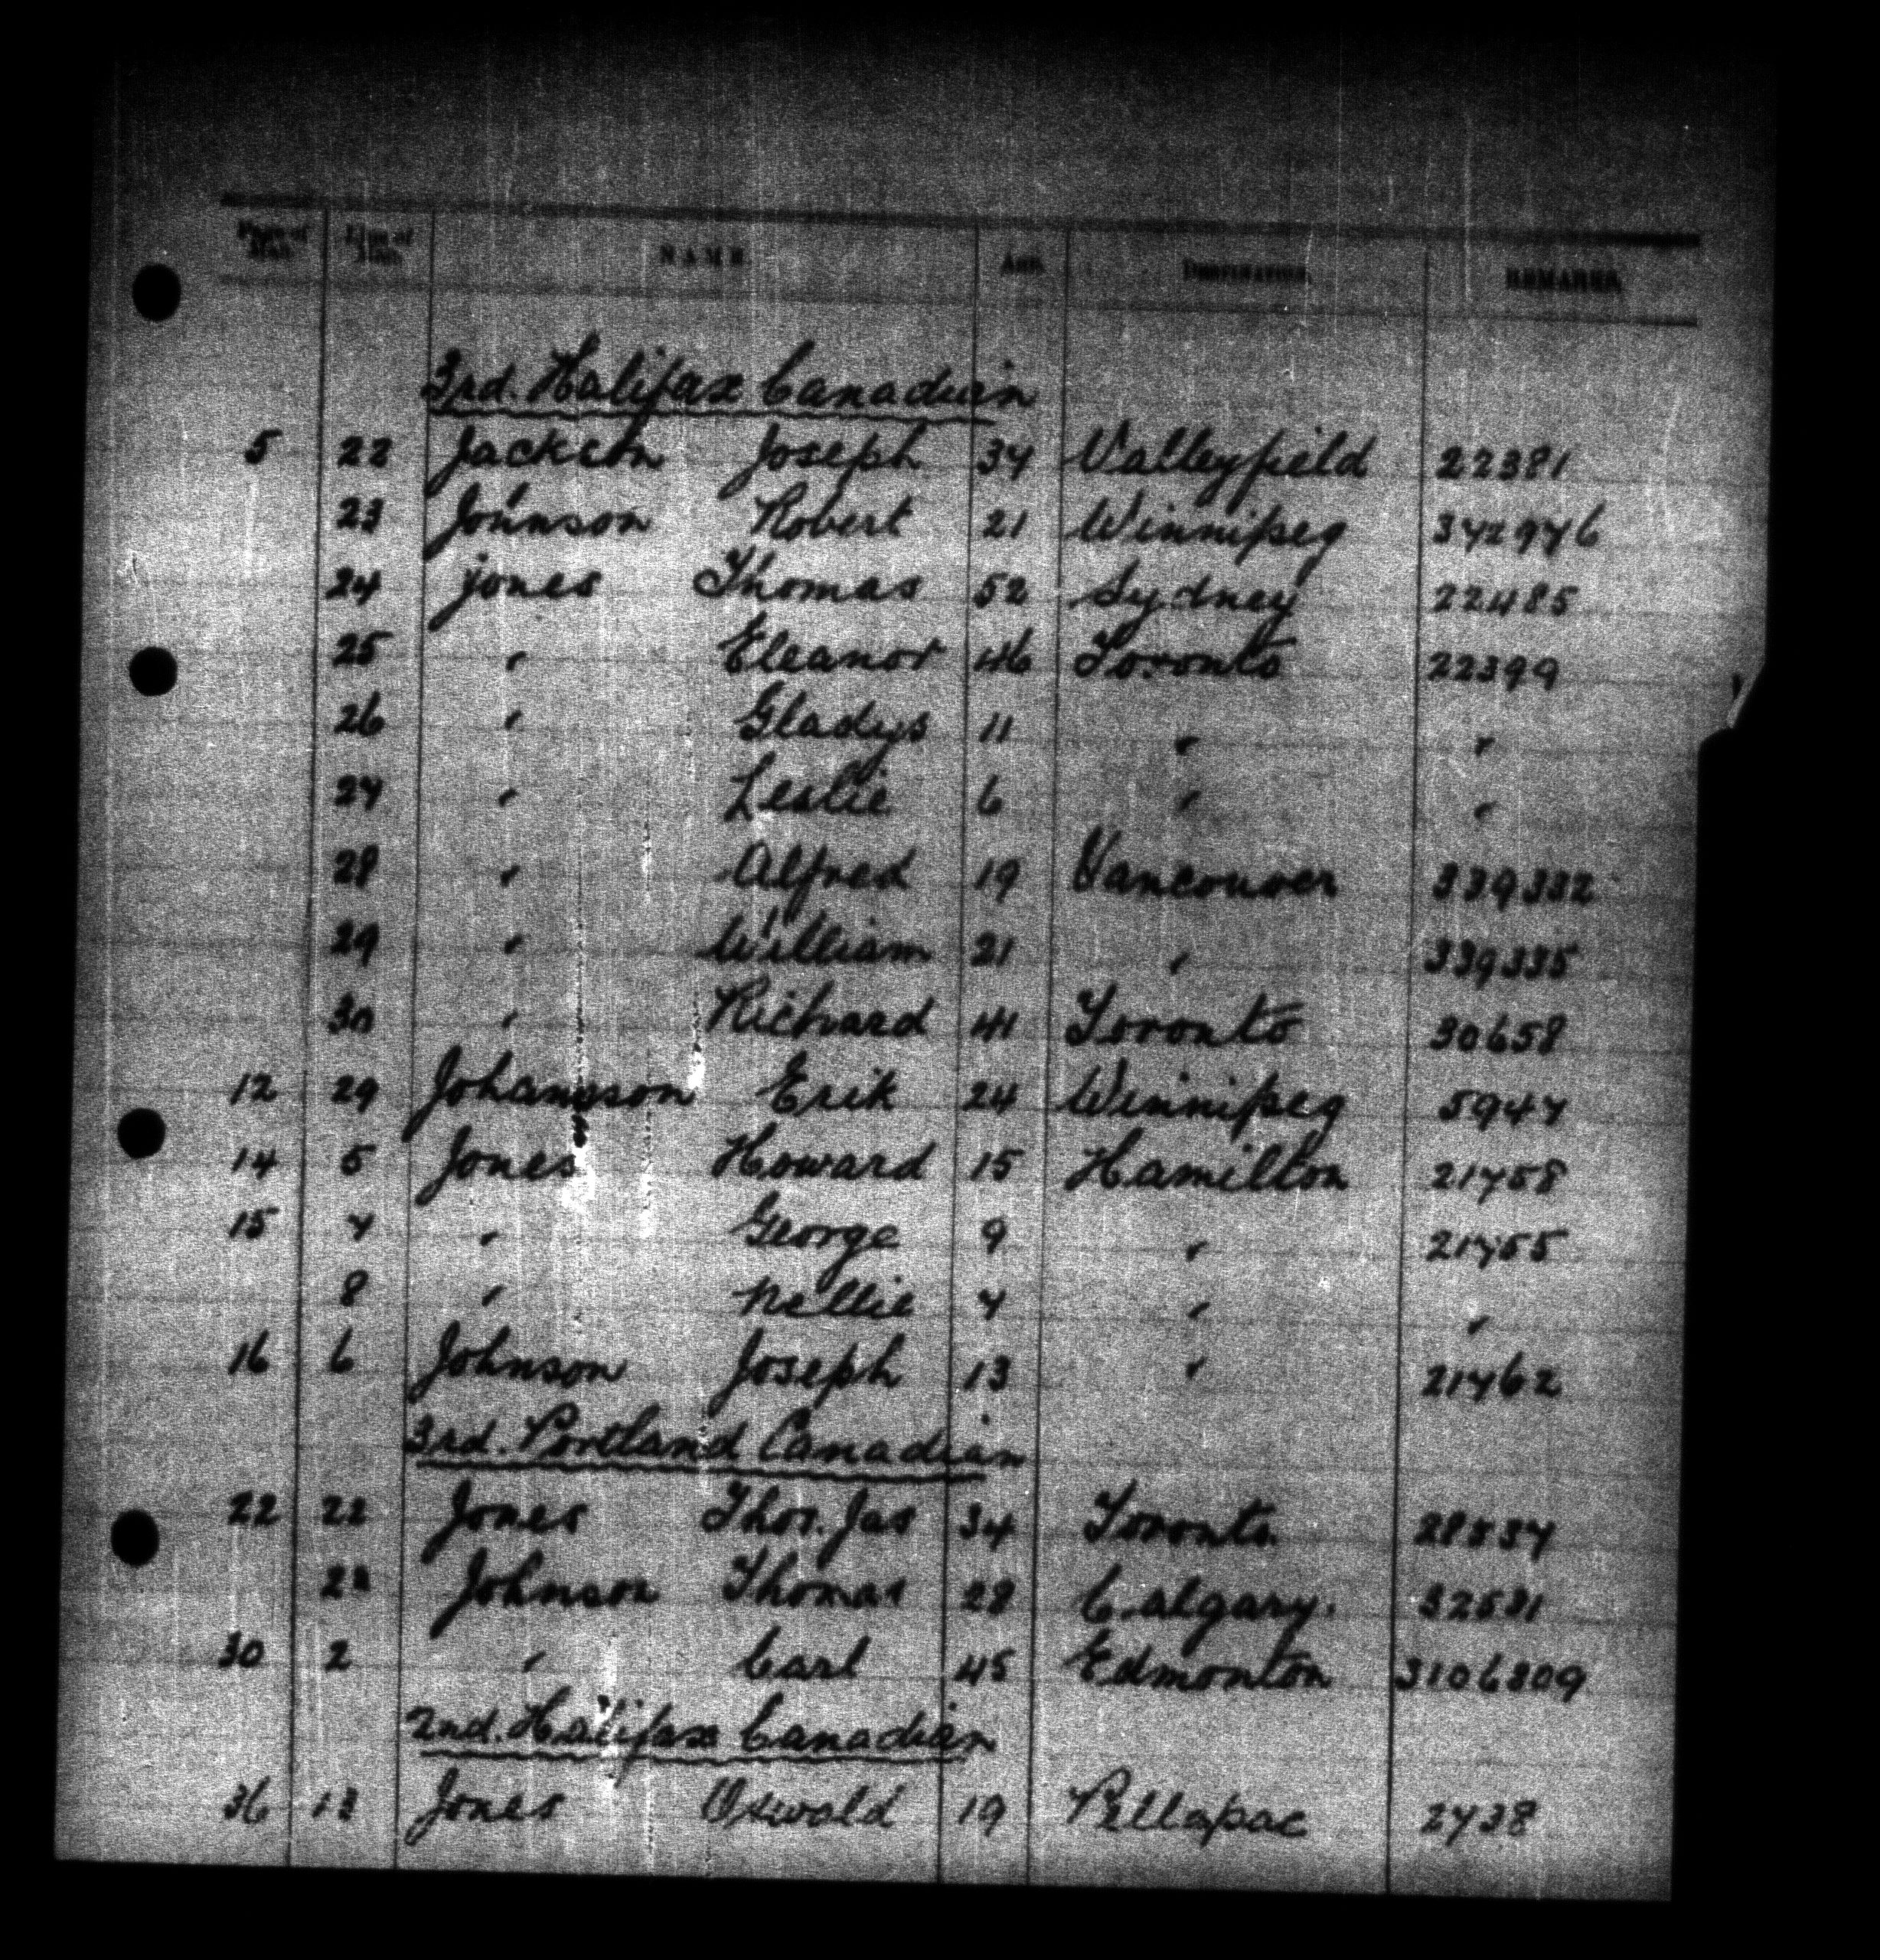 Page of Man. Line of Man. NAME. AGE. DESTINATION. REMARKS.
3rd. Halifax Canadian
5 22 Jackson Joseph 34 Valleyfield 22381
23 Johnson Robert 21 Winnipeg 342976
24 jones Thomas 52 Sydney 22485
25 " Eleanor 46 Toronto 22399
26 " Gladys 11 " "
27 " Leslie 6 " "
28 " Alfred 19 Vancouver 339332
29 " William 21 " 339335
30 " Richard 41 Toronto 30658
12 29 Johansson Erik 24 Winnipeg 5947
14 5 Jones Howard 15 Hamilton 21758
15 7 " George 9 " 21755
8 " Nellie 7 " "
16 6 Johnson Joseph 13 " 21762
3rd. Portland Canadian
22 22 Jones Thos. Jas 34 Toronto. 28537
Johnson Thomas 28 Calgary. 32581
30 2 " Carl 45 Edmonton 3106809
2nd. Halifax Canadian
36 13 Jones Oswald 19 2738